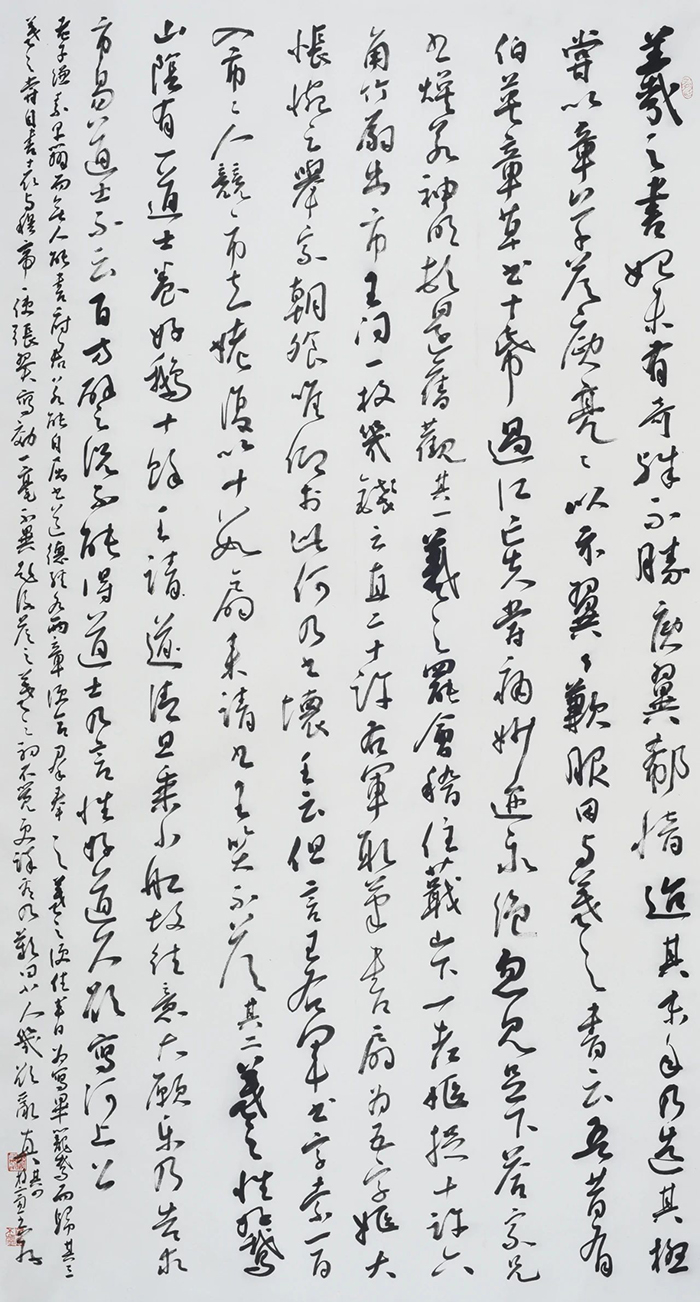 羲之書始未有奇殊不勝庾翼郗愔迨其末年乃造其極
嘗以章草答庾亮亮以示翼翼歎服因與羲之書云吾昔有
伯英章草書十紙過江亡失常痛妙迹永絕忽見足下答家兄
書煥若神明頓還舊觀其一羲之罷會稽住蕺山下一老嫗捉十許六
角竹扇出市王問一枚幾錢云直二十許右軍取筆書扇為五字嫗大
悵惋云舉家朝飧唯仰於此何乃書壞王云但言王右軍書字索一百
入市市人競市去姥復以十數扇來請書王笑不答其二羲之性好鵝
山陰有一道士養好鵝十餘王請遂清旦乘小船故往意大願樂乃告求
市易道士不云百方譬說不能得道士乃言性好道久欲寫河上公
老子縑素早辦而無人能書府君若能自屈書道德經各兩章便合群奉之羲之便住半日為寫畢籠鵝而歸其三
羲之嘗自書表與穆帝帝使張翼寫效一毫不異題後答之羲之初不覺更詳看乃歎曰小人幾欲亂真其四